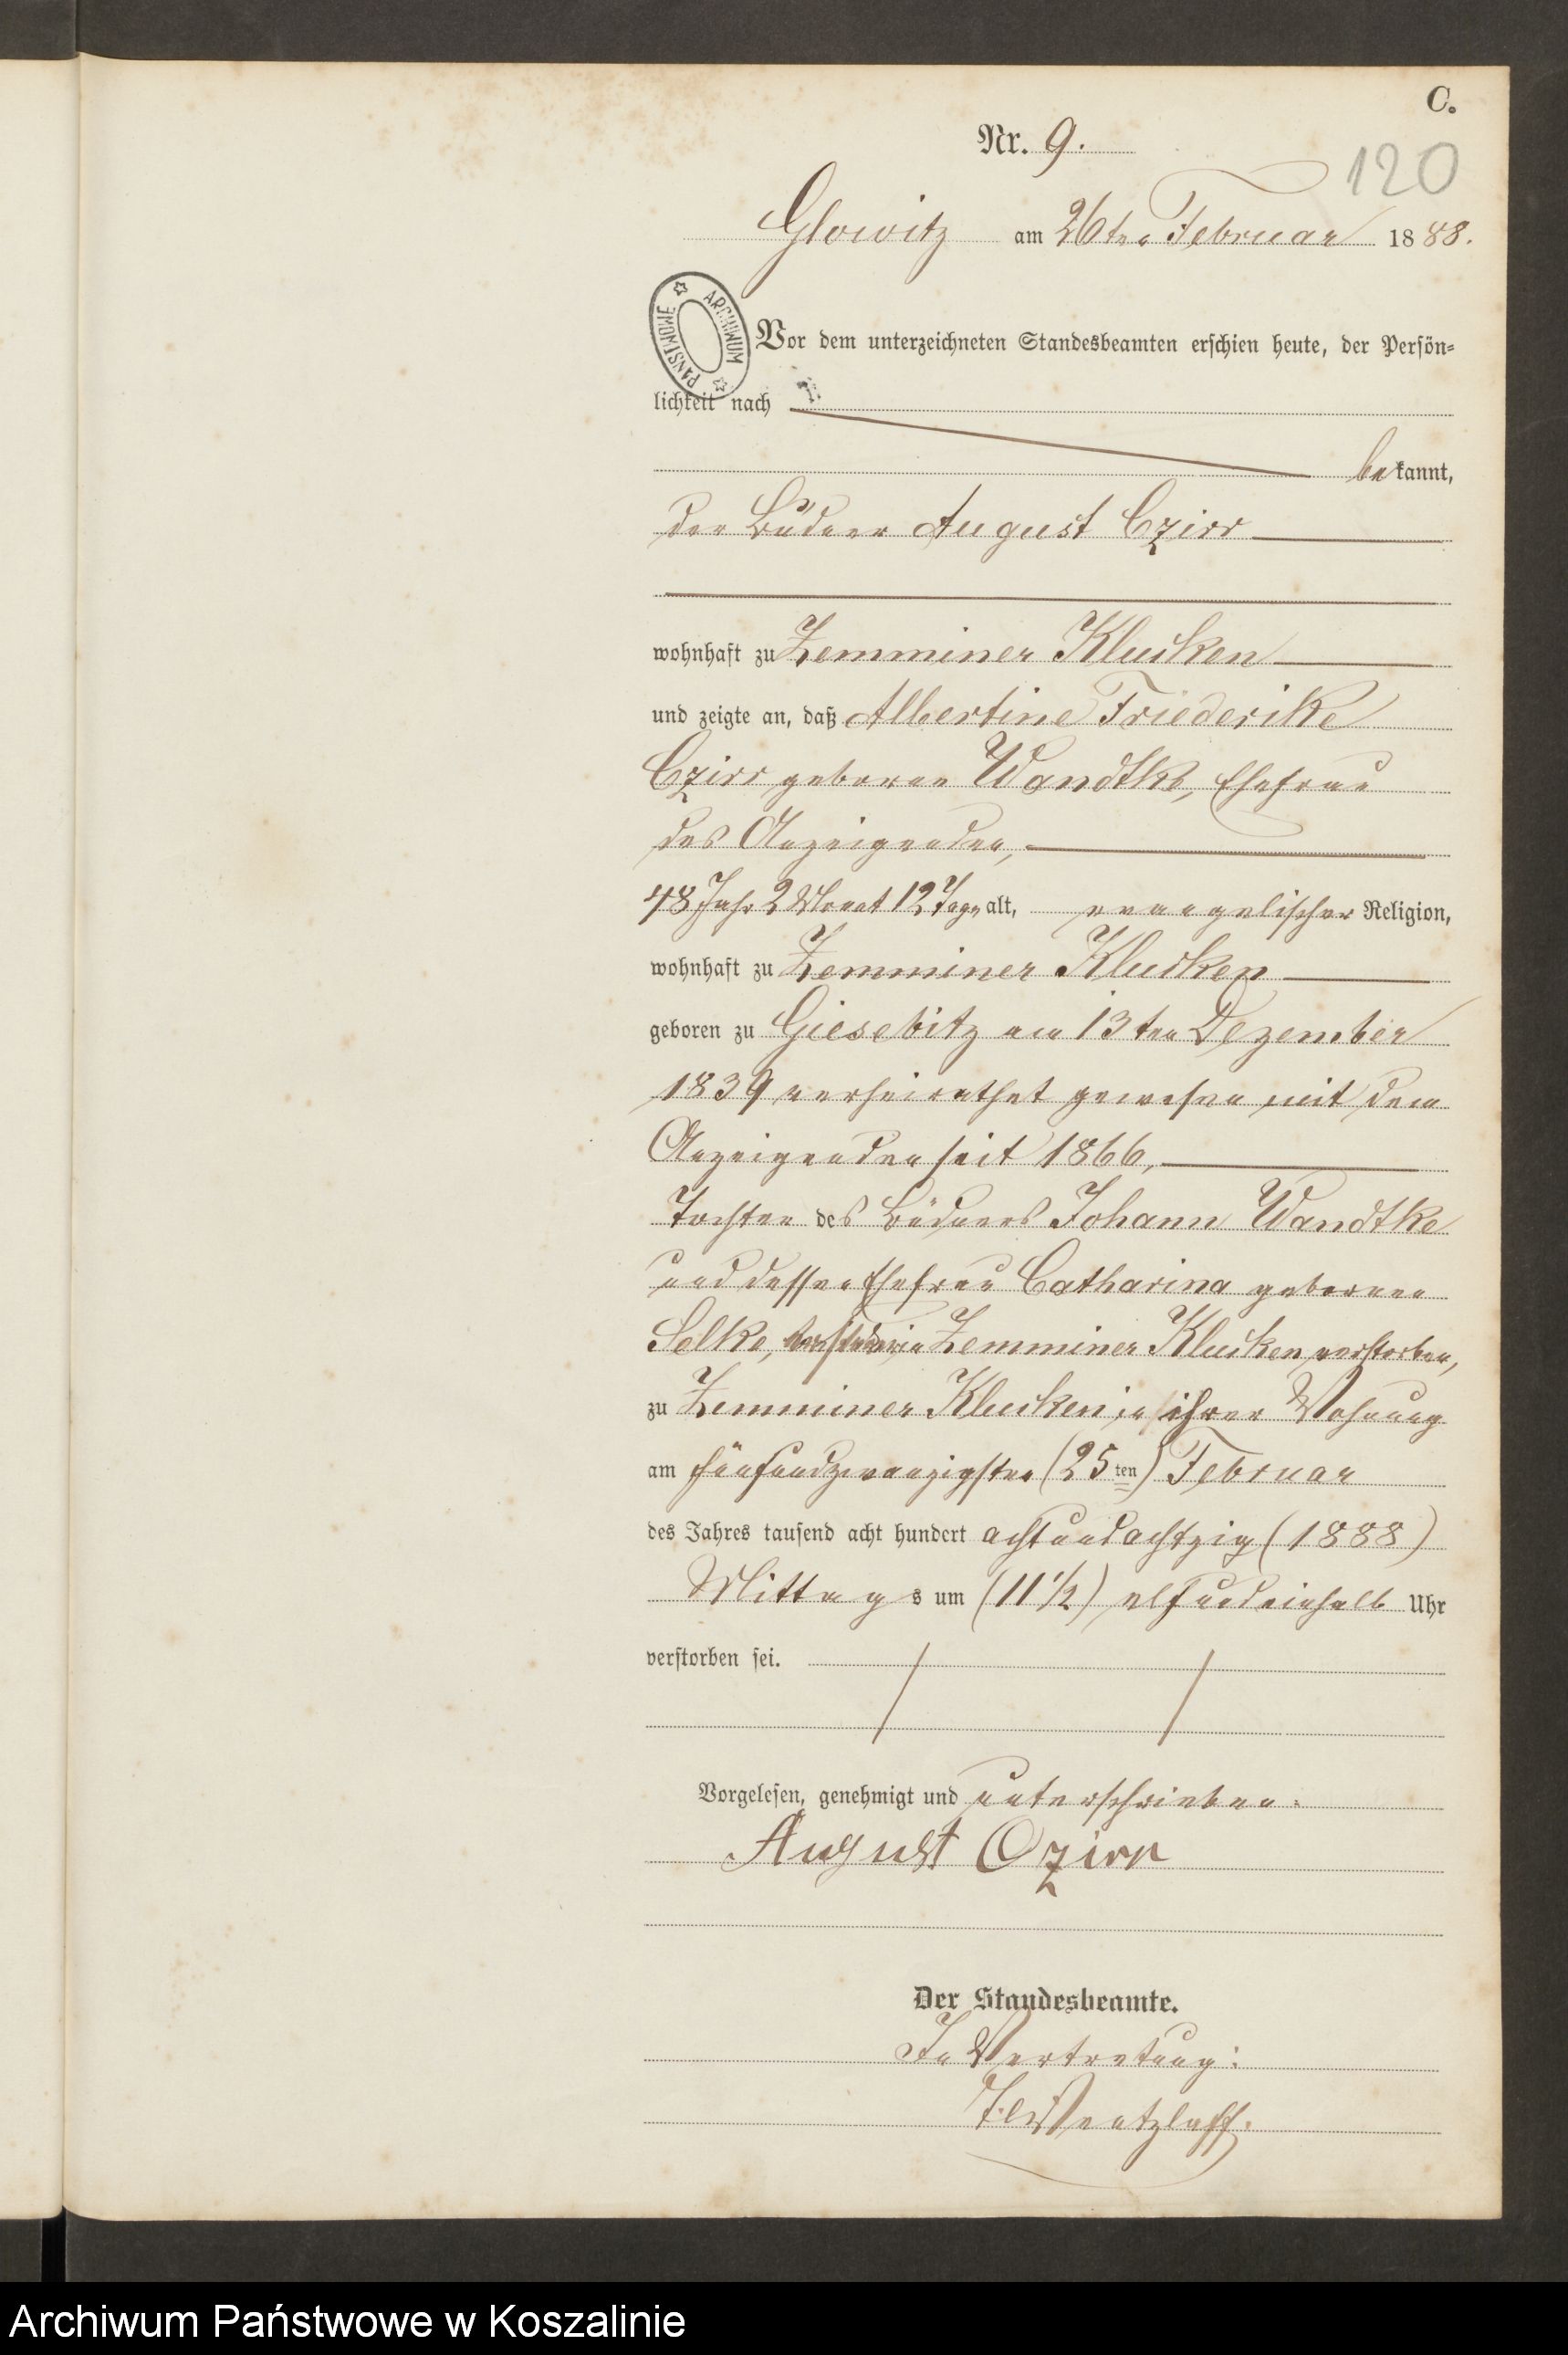 C.
Nr. 9.
120
Glowitz am 26ten Februar 1888.
ARCHIWUM PAŃSTWOWE
Vor dem unterzeichneten Standesbeamten erschien heute, der Persön-
lichkeit nach
bekannt,
der Büdner August Czirr
wohnhaft zu Zemminer Klucken
und zeigte an, daß Albertine Friederike
Czirr geborne Wandtke, Ehefrau
des Anzeigenden,
48 Jahr 2 Monat 12 Tage alt, evangelischer Religion,
wohnhaft zu Zemminer Klucken
geboren zu Giesebitz am 13ten Dezember
1839 verheirathet gewesen mit dem
Anzeigenden seit 1866,
Tochter des Büdners Johann Wandtke
und dessen Ehefrau Catharina geborenen
Selke, in Zemminer Klucken verstorben,
zu Zemminer Klucken in ihrer Wohnung
am fünfundzwanzigsten (25ten) Februar
des Jahres tausend acht hundert achtundachtzig (1888)
Mittags um (11 1/2) elfundeinhalb Uhr
verstorben sei.
Vorgelesen, genehmigt und unterschrieben.
August Czirr
Der Standesbeamte.
In Vertretung:
Wentzlaff.
Archiwum Państwowe w Koszalinie